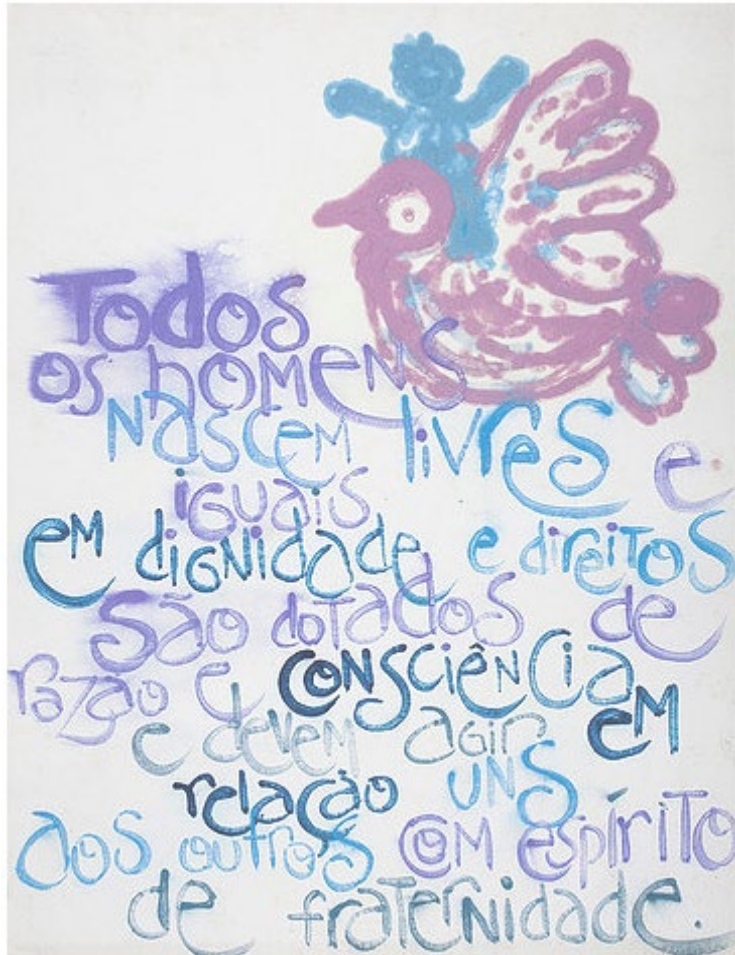 Todos
os homens
nascem livres e
iguais
em dignidade e direitos
são dotados de
razão e consciência em
e devem agir
relação uns
aos outros com espírito
de fraternidade.